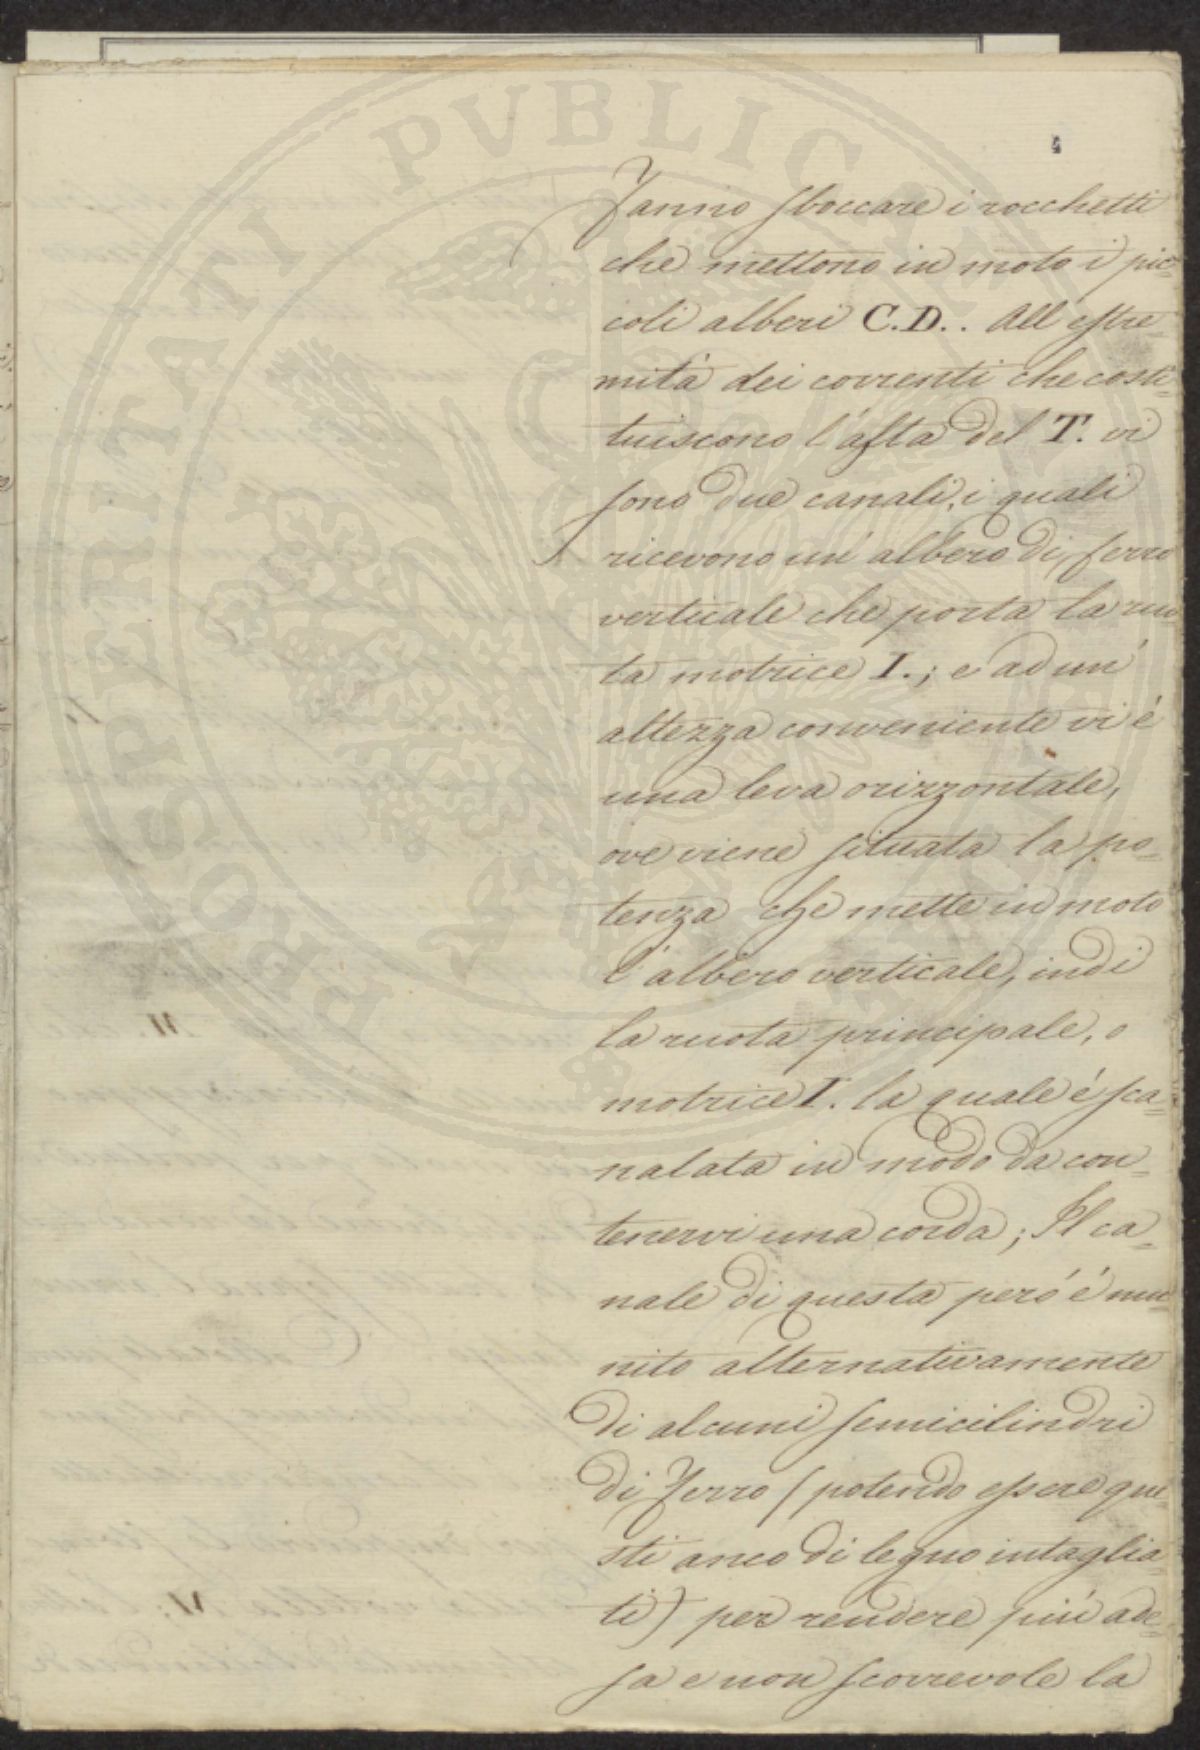 4
fanno sboccare i rocchetti
che mettono in moto i pic=
coli alberi C.D.. All estre=
mità dei correnti che costi=
tuiscono l'asta del T. vi
sono due canali, i quali
ricevono un' albero di ferro
verticale che porta la ruo=
ta motrice I.; e ad un'
altezza conveniente vi é
una leva orizzontale,
ove viene situata la po=
tenza che mette in moto
l'albero verticale, indi
la ruota principale, o
motrice I. la quale é sca=
nalata in modo da con=
tenervi una corda; Il ca=
nale di questa peró é mu=
nito alternativamente
di alcuni semicilindri
di ferro (potendo essere que=
sti anco di legno intaglia=
ti) per rendere piú ade=
sa e non scorrevole la
PROSPERITATI PVBLICAE